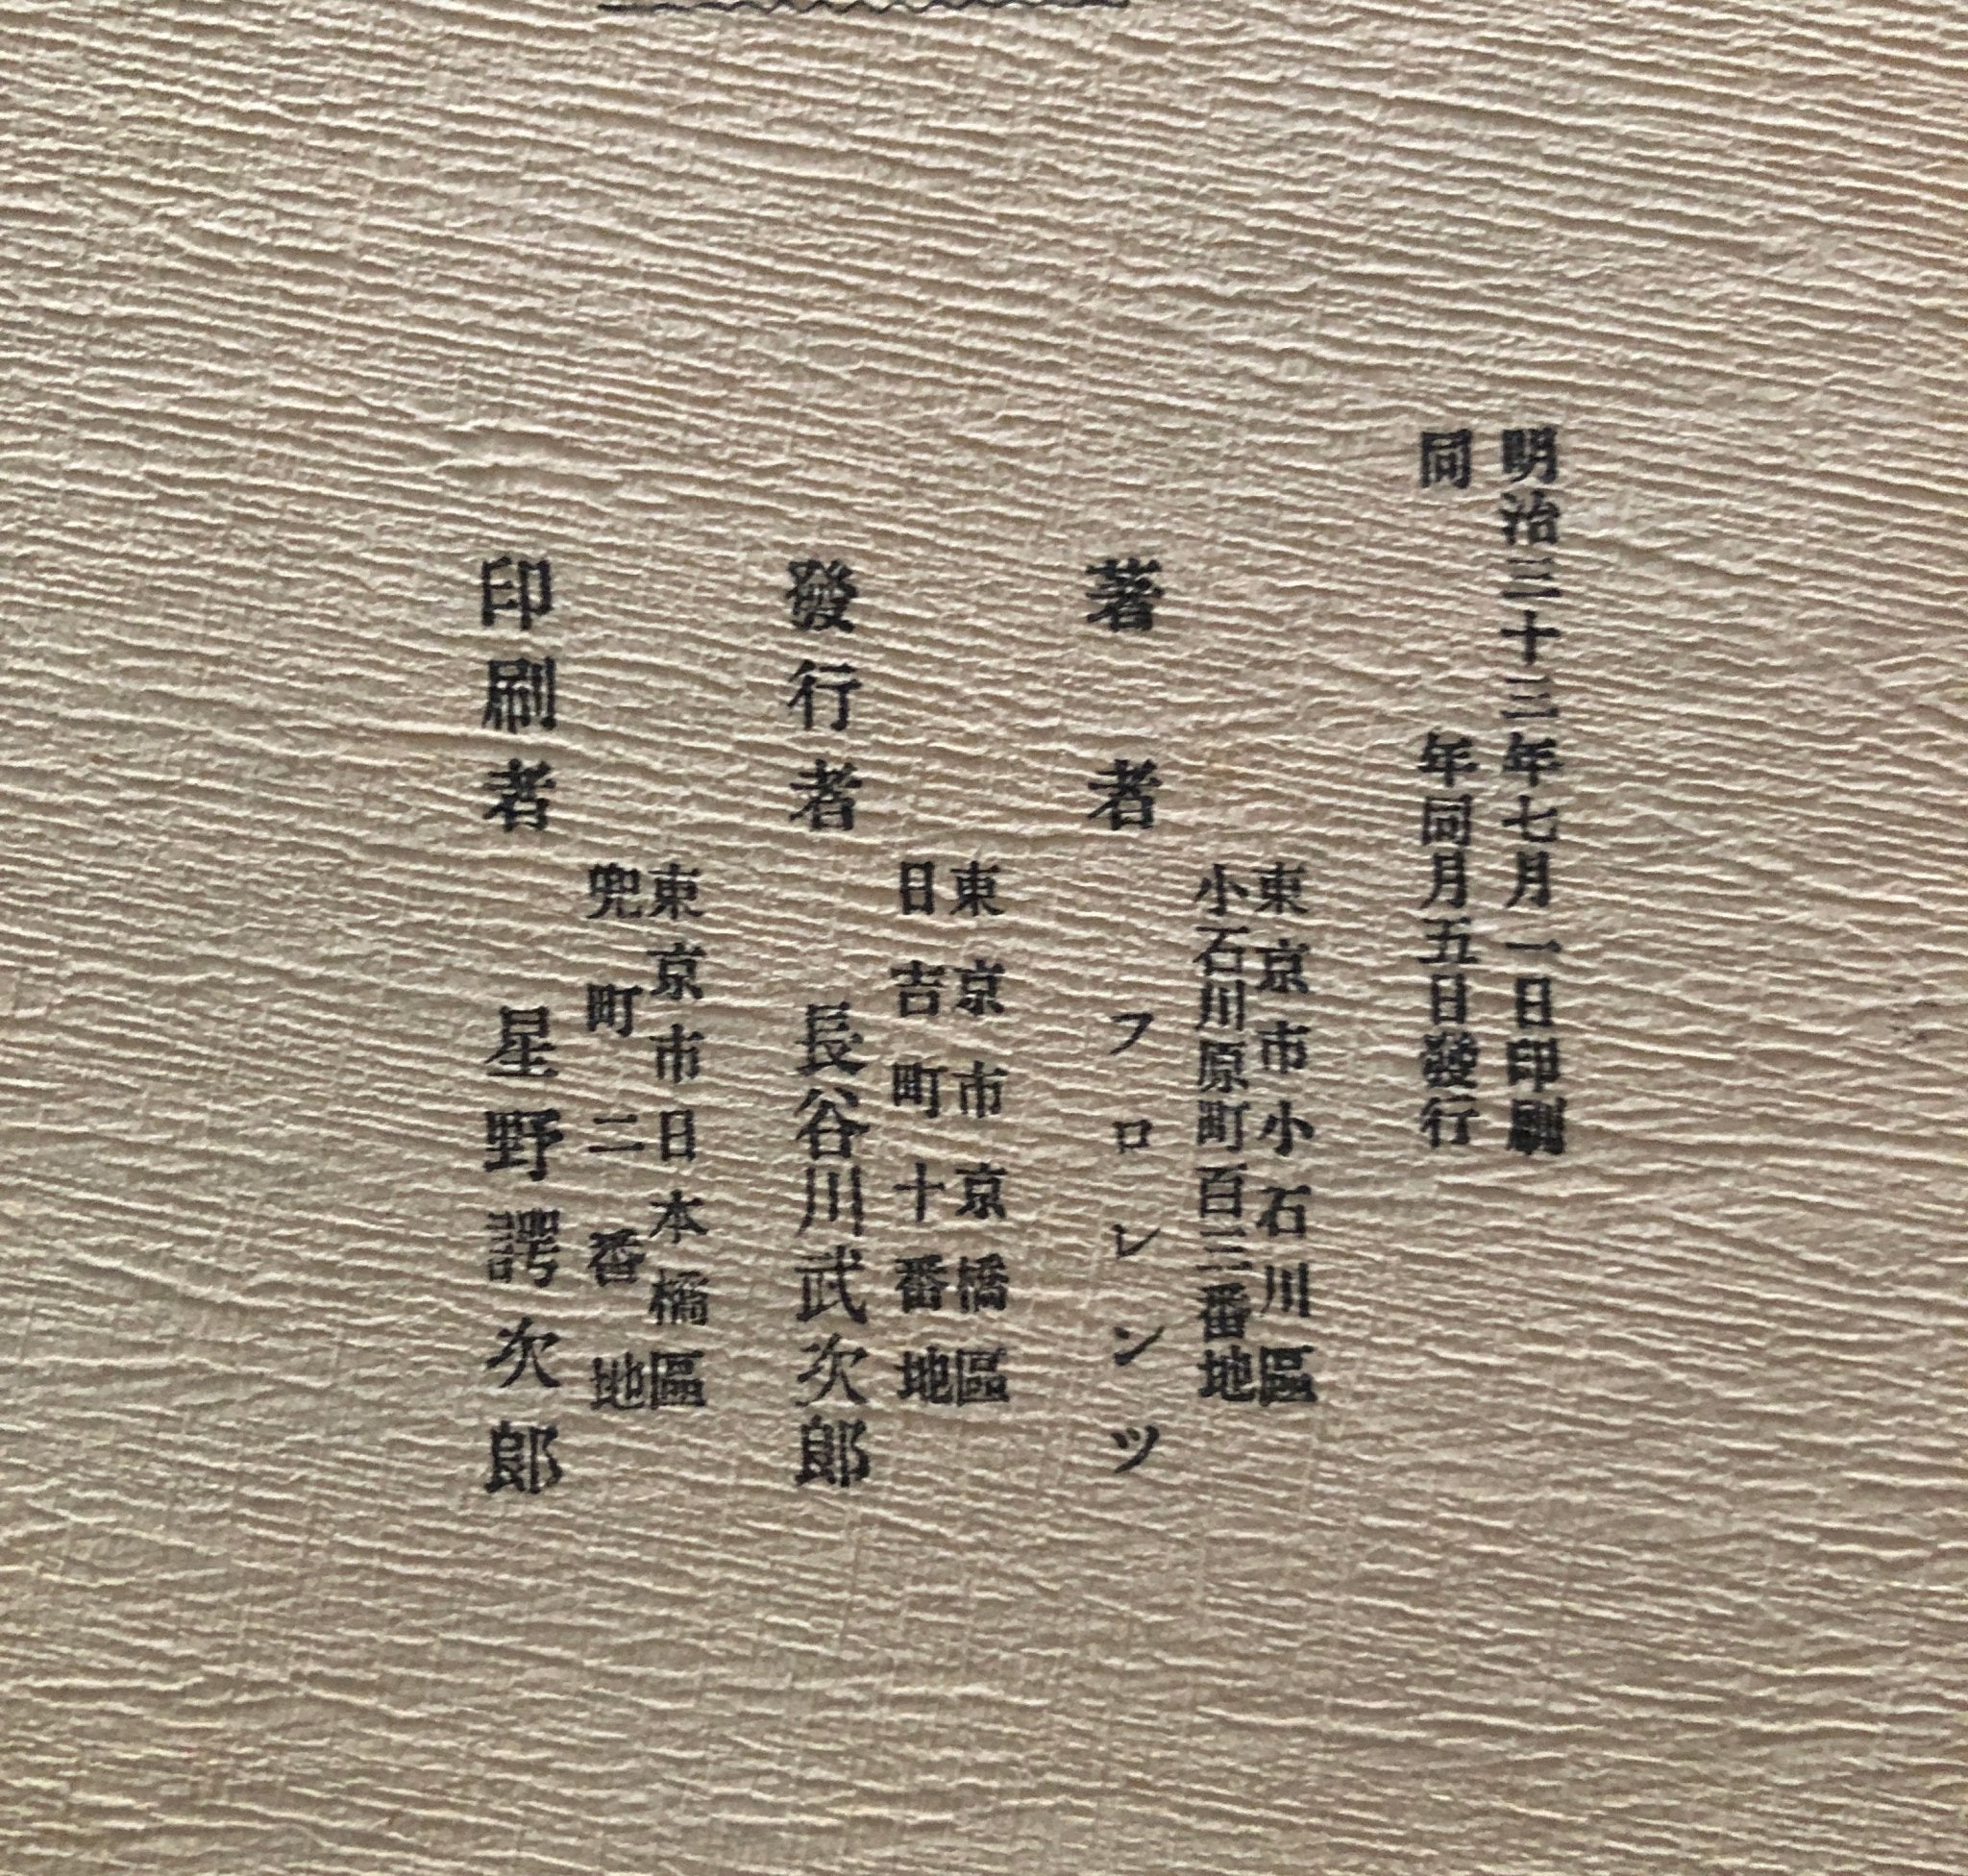 明治三十三年七月一日印刷
同年同月五日發行
東京市小石川區
小石川原町百三番地
著者 フロレンツ
東京市京橋區
日吉町十番地
發行者 長谷川武次郎
東京市日本橋區
兜町二番地
印刷者 星野諤次郎